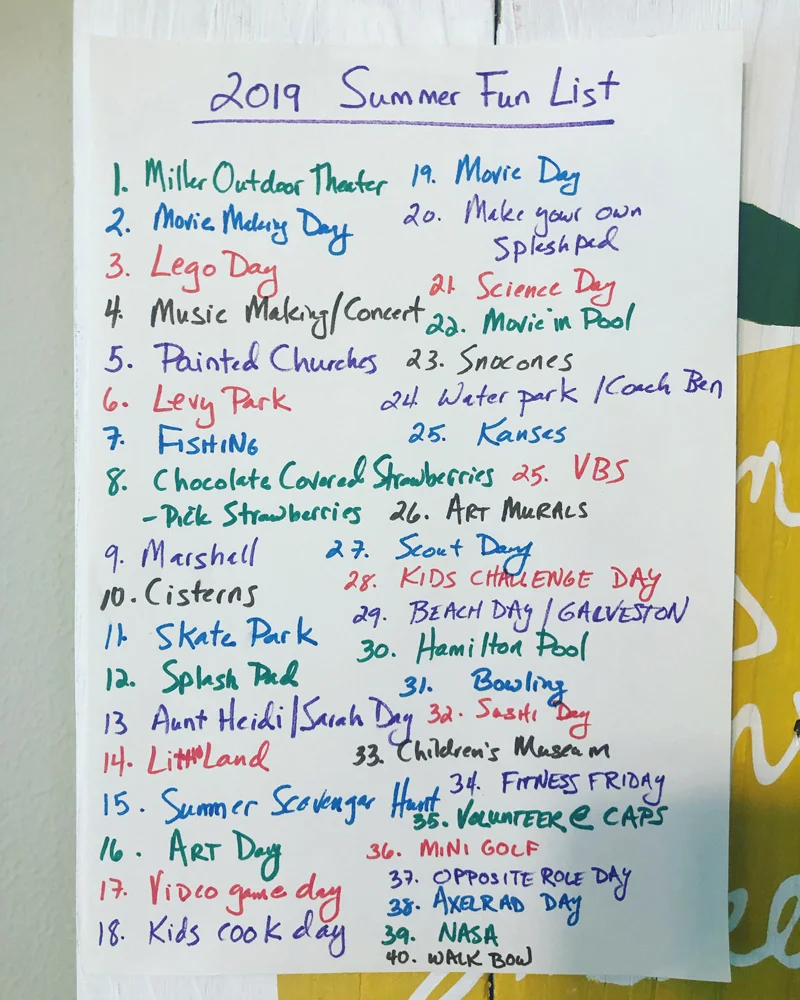 2019 Summer Fun List
1. Miller Outdoor Theater
2. Movie Making Day
3. Lego Day
4. Music Making/Concert
5. Painted Churches
6. Levy Park
7. FISHING
8. Chocolate Covered Strawberries
- Pick Strawberries
9. Marshall
10. Cisterns
11. Skate Park
12. Splash Pad
13 Aunt Heidi/Sarah Day
14. Little Land
15. Summer Scavengar Hunt
16. ART Day
17. Video game day
18. Kids cook day
19. Movie Day
20. Make your own
Splashpad
21. Science Day
22. Movie in Pool
23. Snocones
24. Water park /Coach Ben
25. Kansas
25. VBS
26. ART MURALS
27. Scout Day
28. KIDS CHALLENGE DAY
29. BEACH DAY/GALVESTON
30. Hamilton Pool
31. Bowling
32. Sushi Day
33. Children's Museum
34. FITNESS FRIDAY
35. VOLUNTEER @ CAPS
36. MINI GOLF
37. OPPOSITE ROLE DAY
38. AXELRAD DAY
39. NASA
40. WALK BOW